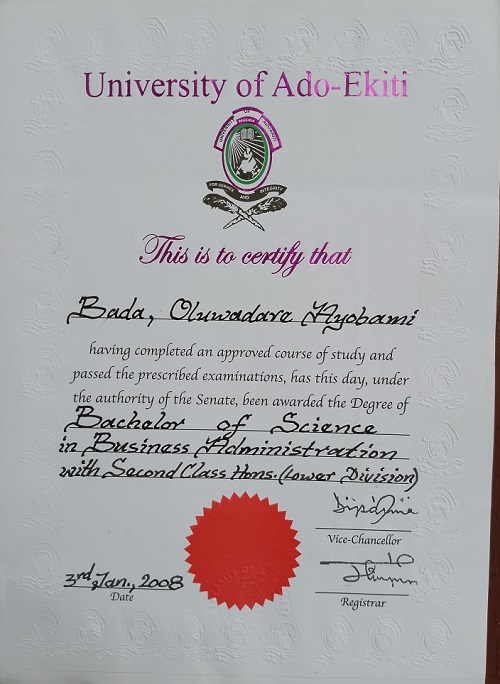 University of Ado-Ekiti
UNIVERSITY OF ADO-EKITI
FOR SERVICE AND INTEGRITY
This is to certify that
Bada, Oluwadare Ayobami
having completed an approved course of study and
passed the prescribed examinations, has this day, under
the authority of the Senate, been awarded the Degree of
Bachelor of Science
in Business Administration
with Second Class Hons. (Lower Division)
Vice-Chancellor
3rd, Jan., 2008
Date
Registrar